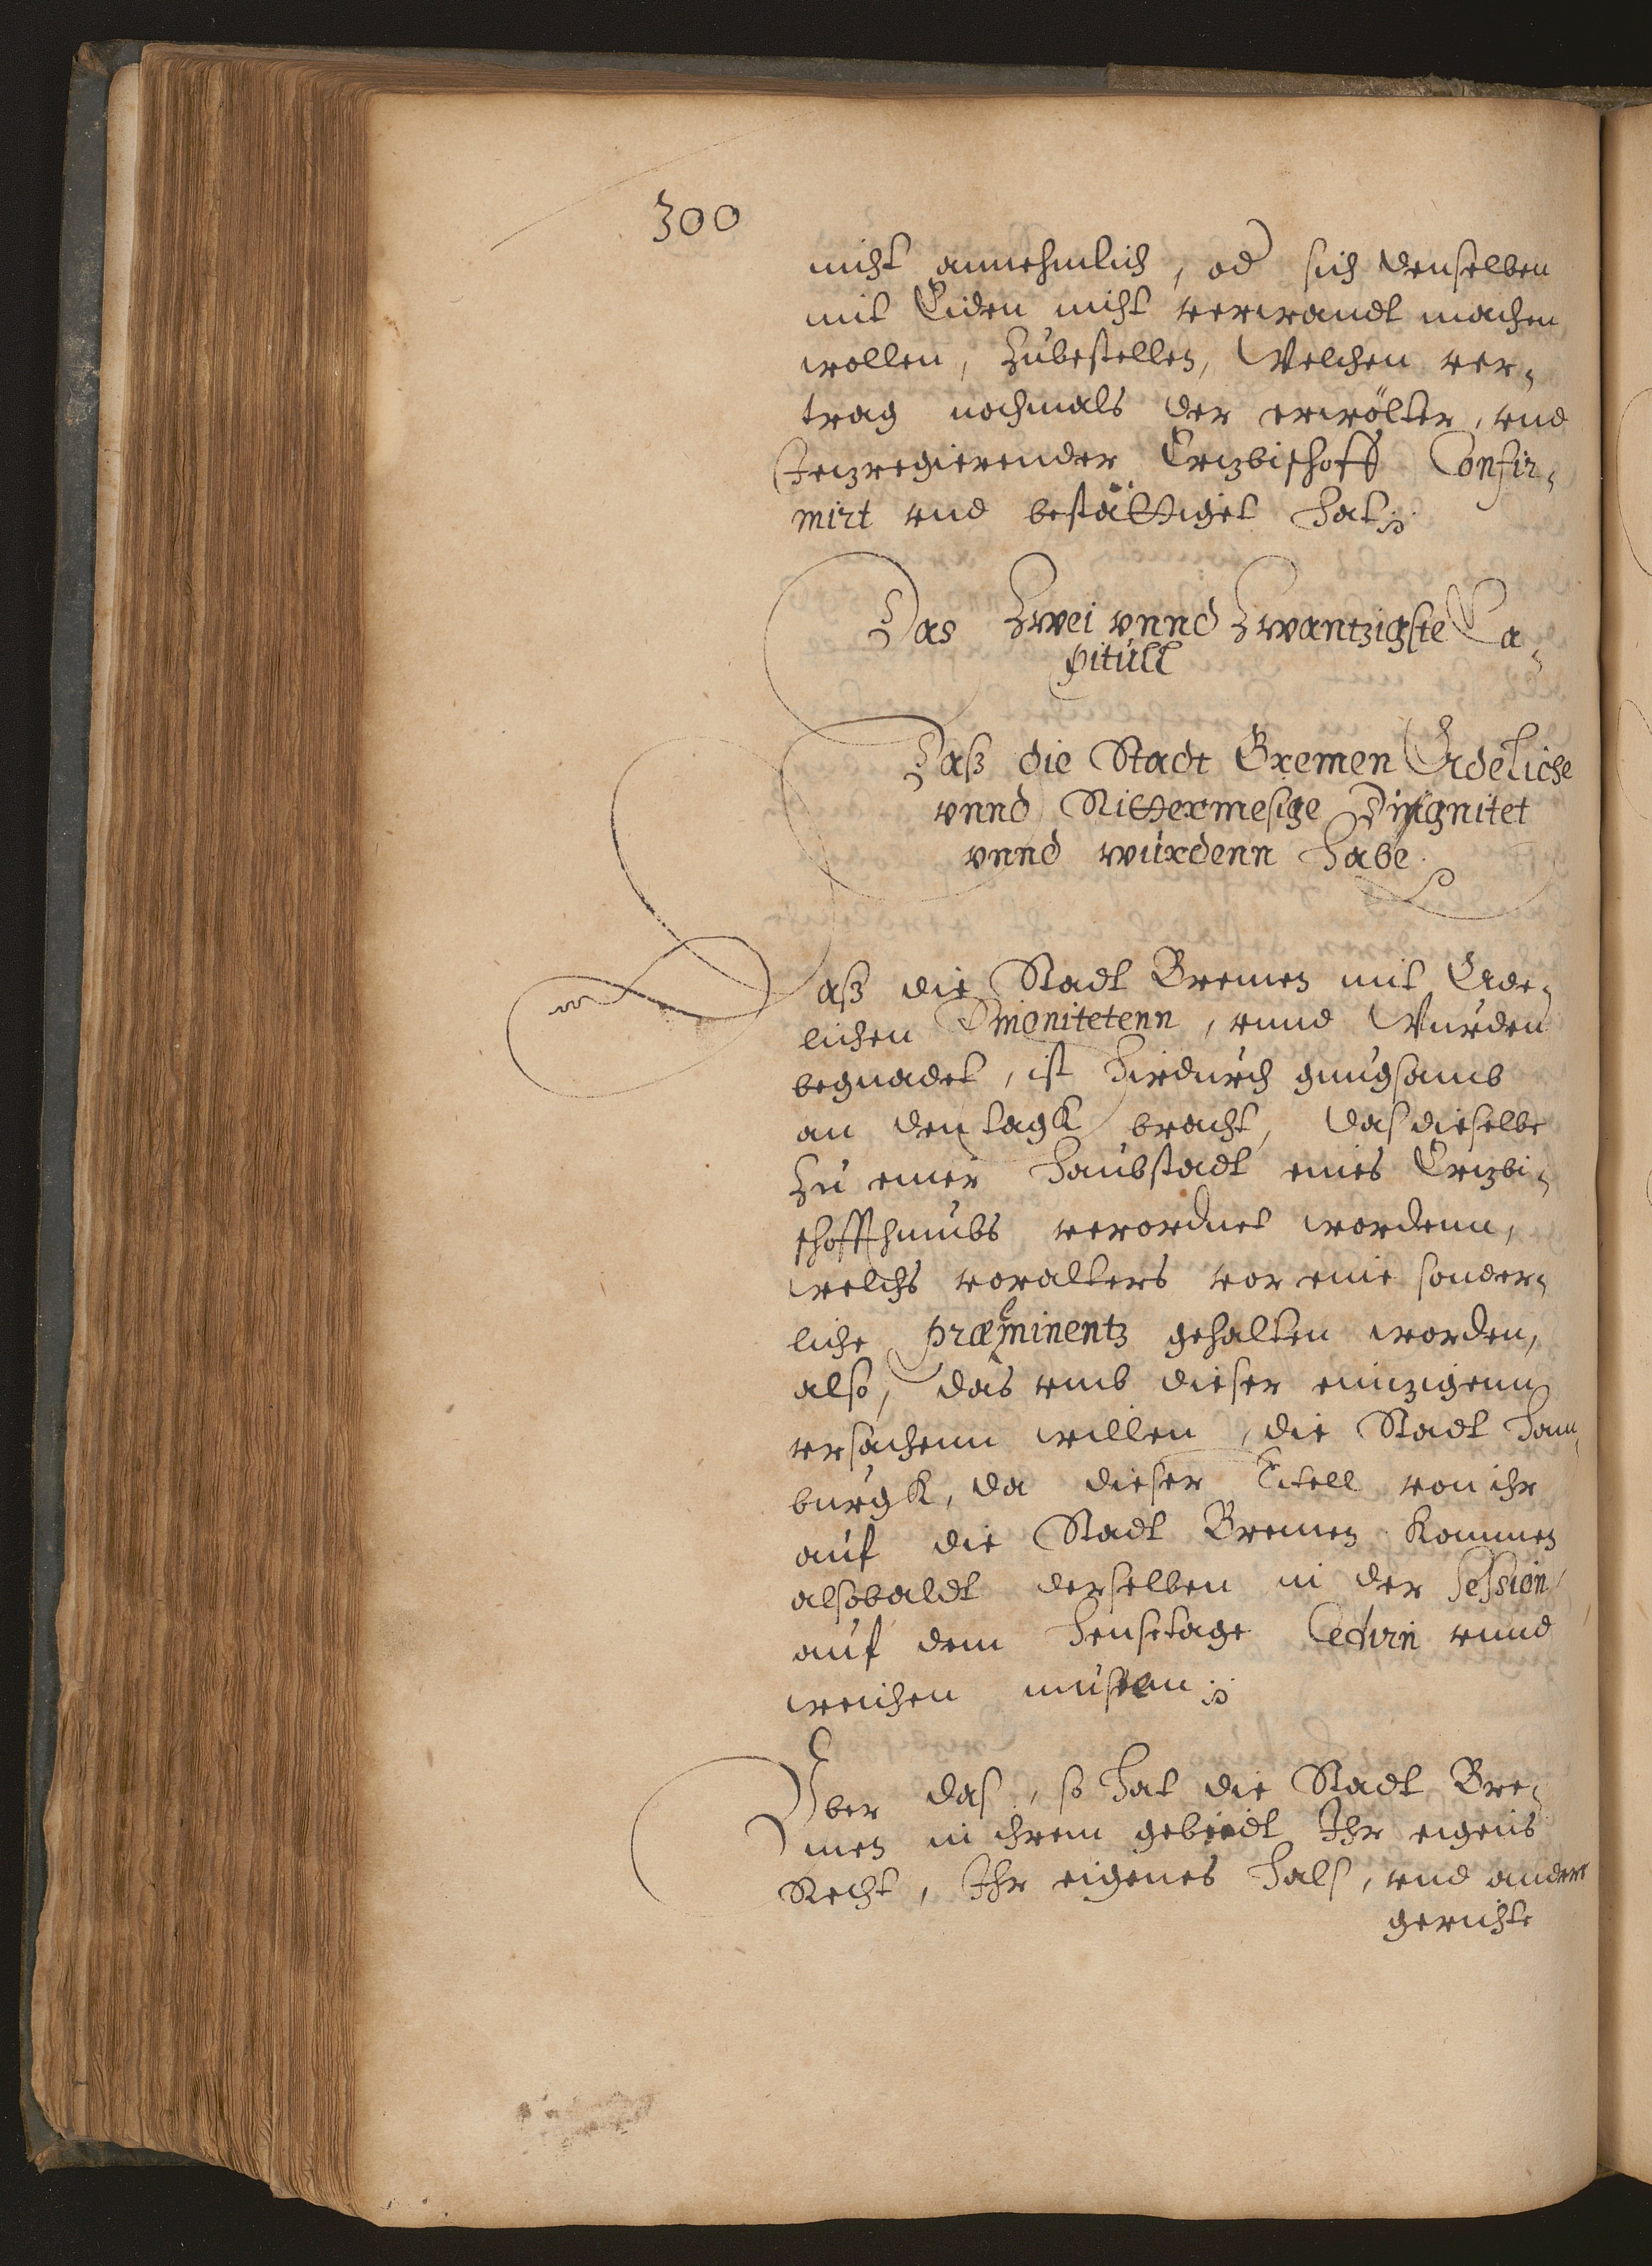 300
nicht annehmlich, od sich denselben
mit Eiden nicht verwandt machen
wollen, Zubestellen, Welchen ver¬
trag nochmals der erwölter, vnd
Jetzregierender Ertzbischoff Confir¬
mirt vnd bestättiget hat.
Das Zwei vnnd Zwantzigste Ca¬
pitull
Daß die Stadt Bremen Adeliche
vnnd Rittermesige Dignitet
vnnd würdenn habe.
Daß die Stadt Bremen mit Ade¬
lichen Dignitetenn, vnnd Wurden
begnadet, ist hirdurch gnugsamb
an den tagk bracht, das dieselbe
Zu einer haubstadt eines Ertzbi¬
schoffthumbs verordnet wordenn,
welchs voralters vor eine sonder¬
liche præeminentz gehalten worden,
also, das vmb dieser eintzigenn
vrsachenn willen, die Stadt Ham¬
burgk, da dieser Titell von ihr
auf die Stadt Bremen kommen
alsobaldt derselben in der Session
auf dem Hensetage Cedirn vnnd
weichen müssenn.
Vber das, so hat die Stadt Bre¬
men in ihrem gebiedt Ihr eigens
Recht, Ihr eigenes Hals, vnd andere
gerichte